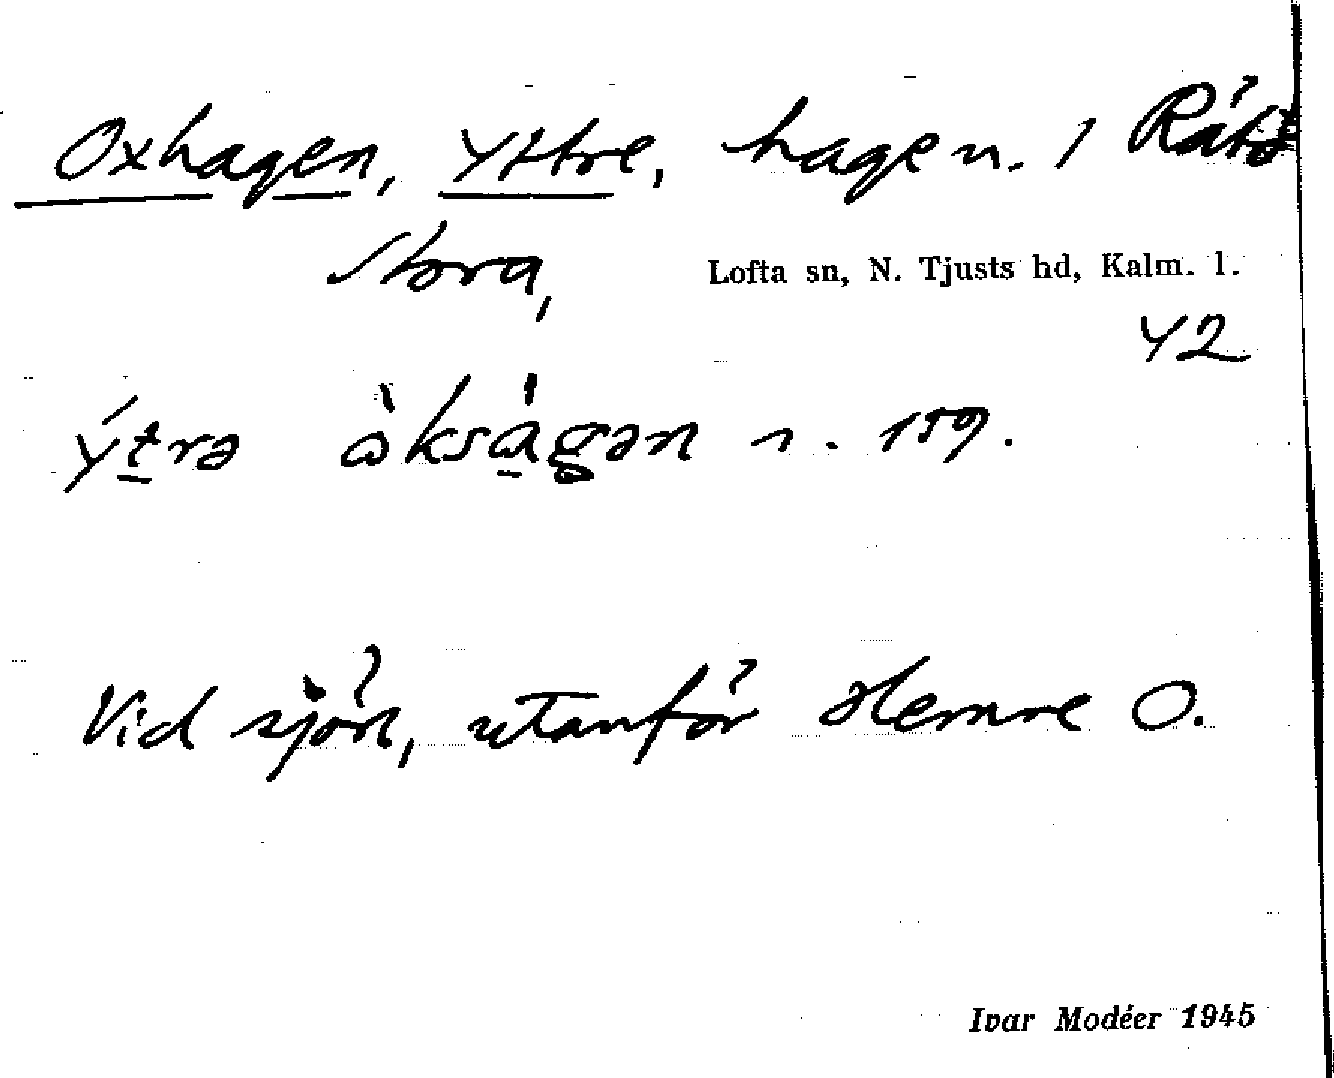 Oxhagen, Yttre, hage n. 1 Råtö
Stora,
Lofta sn, N. Tjusts hd, Kalm. l.
Y2
ýtrə òksàgən n. 159.
Vid sjön, utanför Hemre O.
Ivar Modéer 1945